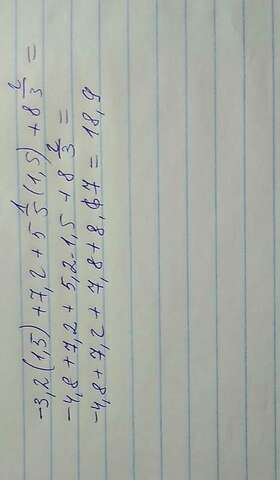 -3,2(1,5)+7,2+5 1/5(1,5)+8 2/3=
-4,8+7,2+5,2·1,5+8 2/3=
-4,8+7,2+7,8+8,67=18,9